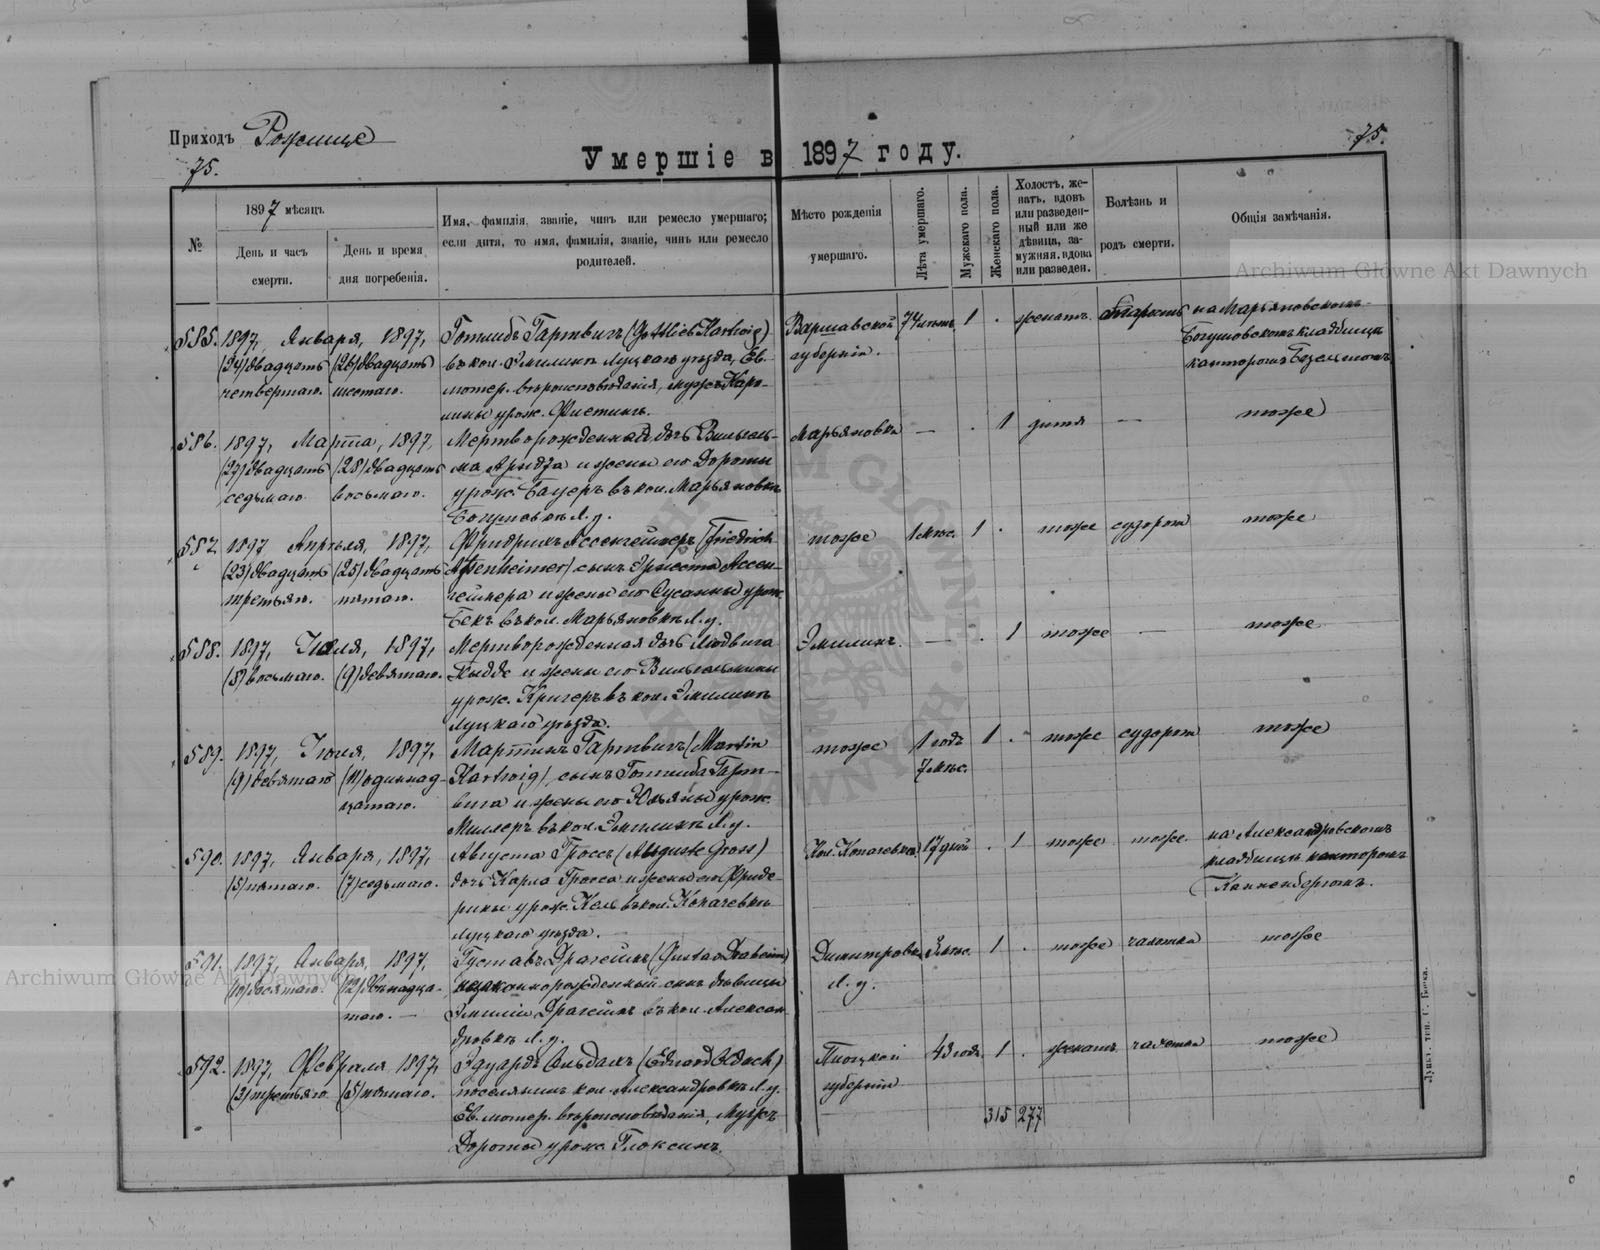 Приходъ Рожище
75.
75.
Умершіе в 1897 году.
№
1897 мѣсяцъ
День и часъ смерти.
День и время дня погребенія.
Имя, фамилія, званіе, чинъ или ремесло умершаго;
если дитя, то имя, фамилія, званіе, чинъ или ремесло
родителей.
Мѣсто рожденія
умершаго.
Лѣта умершаго.
Мужскаго пола.
Женскаго пола.
Холостъ, же-
натъ, вдовъ
или разведен-
ный или же
дѣвица, за-
мужняя, вдова
или разведен.
Болѣзнь и
родъ смерти.
Общія замѣчанія.
Archiwum Główne Akt Dawnych
585. 1897, Января, 1897, Готлибъ Гартвигъ (Gottlieb Hartwig) Варшавской 74 лѣтъ 1 . женатъ. старость на Марьяновскомъ-
(24) двадцать (26) двадцать въ кол. Эмилинъ Луцкаго уѣзда, Ев. губерніи. Богушовскомъ кладбищѣ
четвертаго. шестаго. лютер. вѣроисповѣданія, мужъ Каро- канторомъ
лины урож.
586. 1897, Марта, 1897, Мертворожденная дочь Вильгель- Марьяновка — . 1 дитя — тоже
(27) двадцать (28) двадцать ма Арндта и жены его Дороты
седьмаго восьмаго. урож. Бауеръ въ кол. Марьяновкѣ
Богушовкѣ Л. у.
587 1897 Апрѣля, 1897, Фридрихъ Ассенгеймеръ (Friedrich тоже 1 мѣс. 1 . тоже судороги тоже
(23) двадцать (25) двадцать Assenheimer) сынъ Эрнста Ассен-
третьяго. пятаго. геймера и жены его Сусанны урож.
Бекъ въ кол. Марьяновкѣ Л. у.
588. 1897, Іюля, 1897, Мертворожденная дочь Людвига Эмилинъ. — . 1 тоже — тоже
(8) восьмаго. (9) девятаго. и жены его Вильгельмины
урож. Кригеръ въ кол. Эмилинѣ
Луцкаго уѣзда.
589. 1897, Іюля, 1897, Мартинъ Гартвигъ (Martin тоже 1 годъ 1 . тоже судороги тоже
(9) девятаго (11) одиннад- Hartwig), сынъ Готлиба Гарт- 7 мѣс.
цатаго. вига и жены его Юльяны урож.
Миллеръ въ кол. Эмилинѣ Л. у.
590. 1897, Января, 1897, Августа Гроссъ (Auguste Gross) Кол. Копачевка 17 дней . 1 тоже тоже. на Александровскомъ
(5) пятаго. (7) седьмаго. дочь Карла Гросса и жены его Фриде- кладбищѣ канторомъ
рики урож. въ кол. Копачевкѣ Канненбергомъ.
Луцкаго уѣзда.
591. 1897, Января, 1897, Густавъ Драгеймъ (Gustav Draheim) Димитровка мѣс. 1 . тоже чахотка тоже
(10) десятаго. (12) двѣнадца- незаконнорожденный сынъ дѣвицы Л. у.
таго. — Эмиліи Драгеймъ въ кол. Алексан-
дровкѣ Л. у.
592. 1897, Февраля 1897, Эдуардъ Ольдахъ (Eduard Oldach) Плоцкой 43 года 1 . женатъ чахотка тоже
(3) третьяго (5) пятаго. поселянинъ кол. Александровкѣ Л. у. губерніи
Ев. лютер. вѣроисповѣданія, Мужъ
Дороты урож. Глоксинъ.
315 277
Archiwum Główne Akt Dawnych